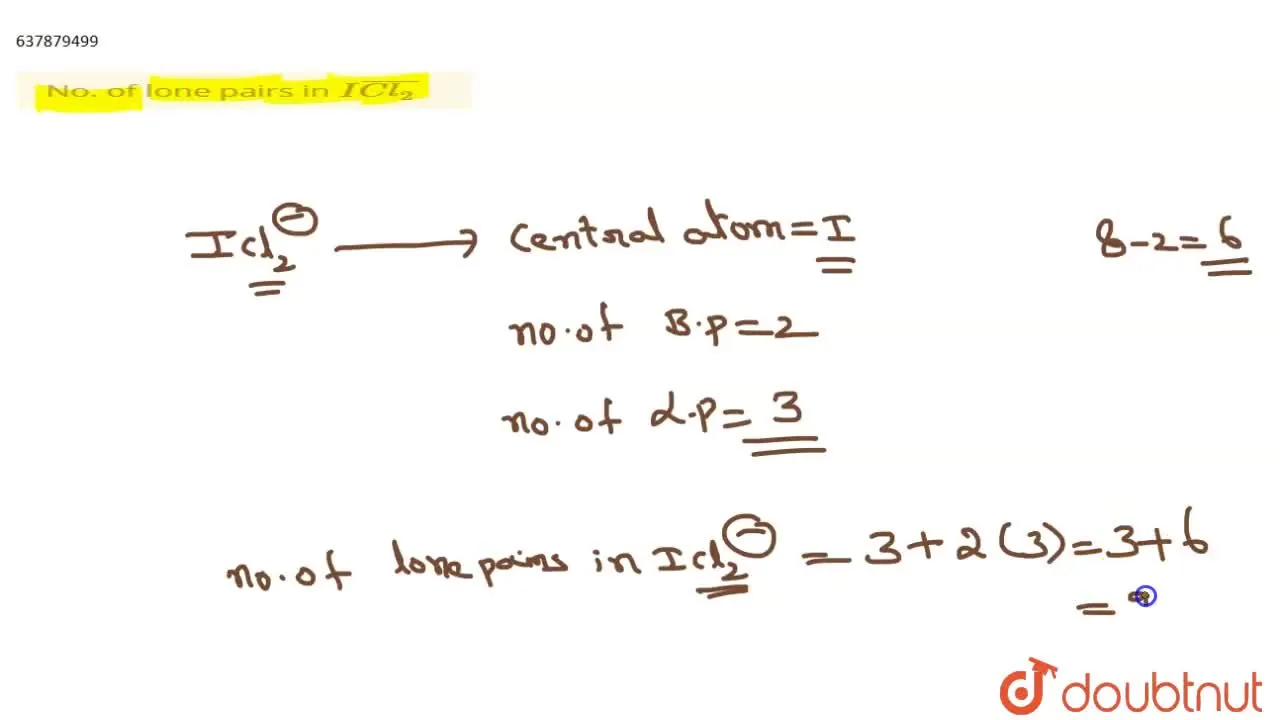 637879499
No. of lone pairs in $\overline{ICl_2}$
ICl₂⊖ ⟶ Central atom = I
8-2=6
no. of B.P=2
no. of L.P= 3
no. of lone pairs in ICl₂⊖ = 3+2(3)=3+6
=
doubtnut